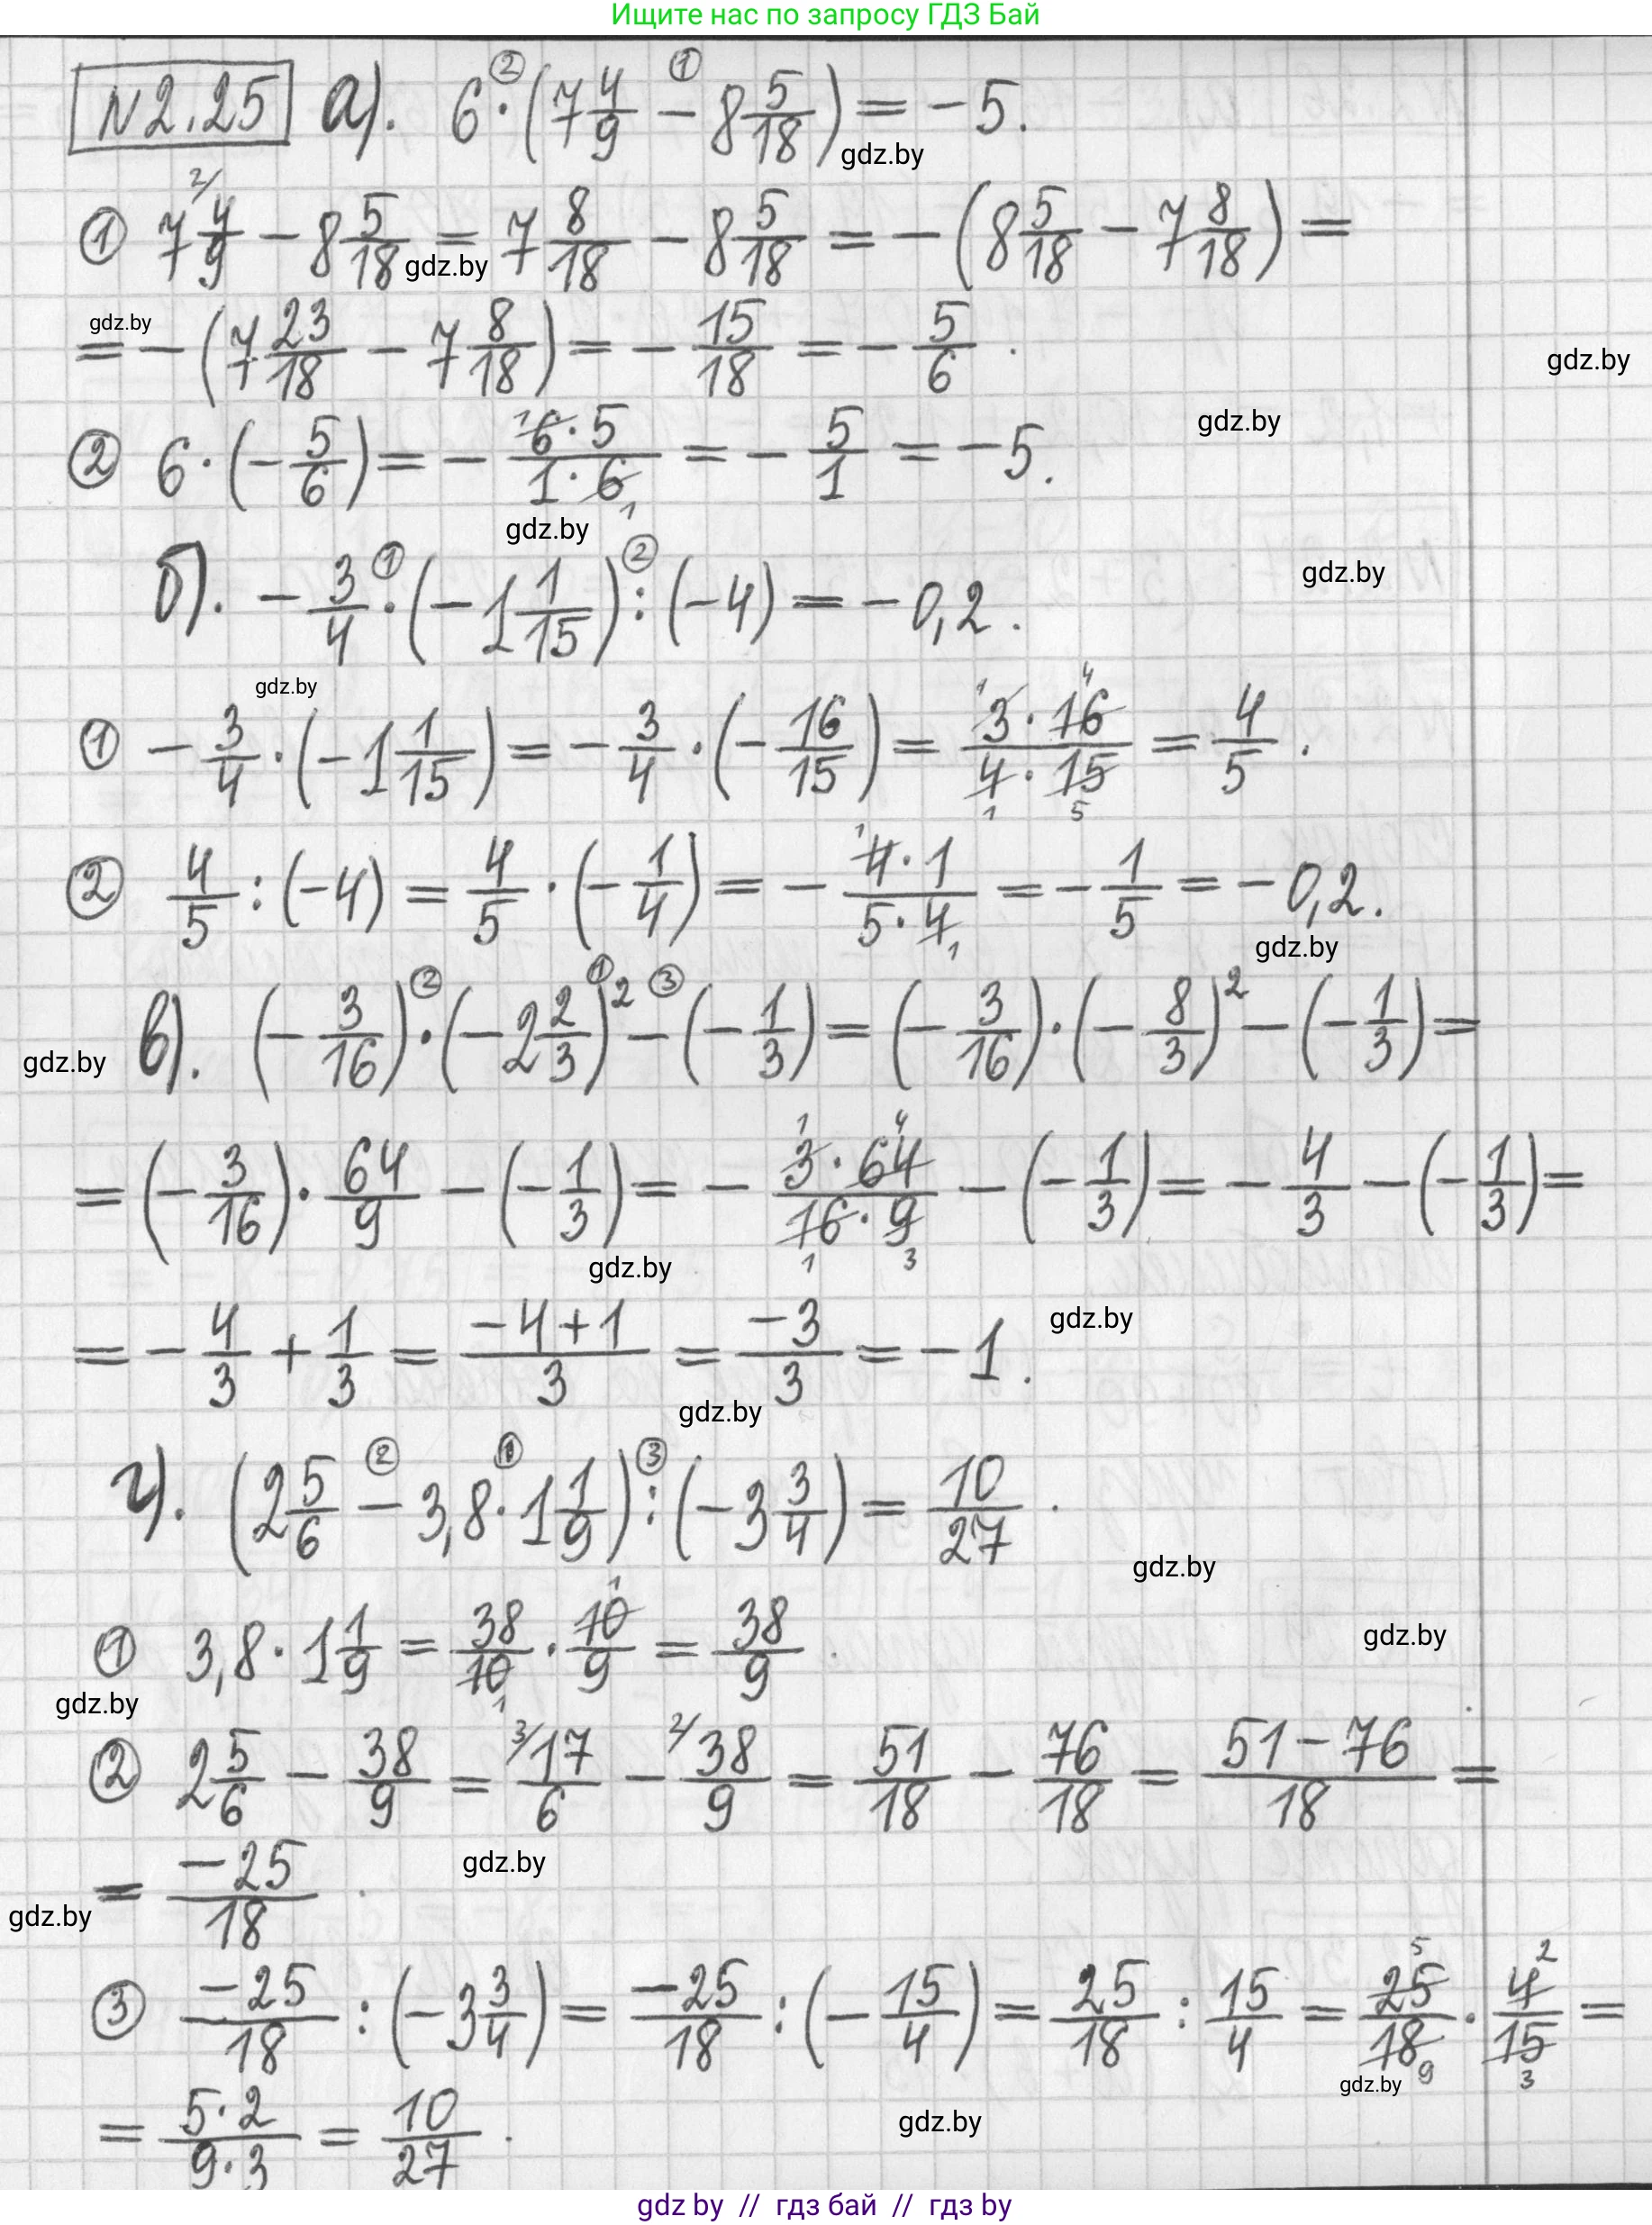 Ищите нас по запросу ГДЗ Бай
N2.25 а). 6 · (7 4/9 − 8 5/18) = −5.
② ①
gdz.by
① 7 4/9 − 8 5/18 = 7 8/18 − 8 5/18 = −(8 5/18 − 7 8/18) =
2/
gdz.by
gdz.by
= −(7 23/18 − 7 8/18) = −15/18 = −5/6.
gdz.by
gdz.by
② 6 · (−5/6) = −(6·5)/(1·6) = −5/1 = −5.
1 1
gdz.by
б). −3/4 · (−1 1/15) : (−4) = −0,2.
① ②
gdz.by
gdz.by
① −3/4 · (−1 1/15) = −3/4 · (−16/15) = (3·16)/(4·15) = 4/5.
1 4 1 5
② 4/5 : (−4) = 4/5 · (−1/4) = −(4·1)/(5·4) = −1/5 = −0,2.
1 1
gdz.by
в). (−3/16) · (−2 2/3)² − (−1/3) = (−3/16) · (−8/3)² − (−1/3) =
② ① ③
gdz.by
= (−3/16) · 64/9 − (−1/3) = −(3·64)/(16·9) − (−1/3) = −4/3 − (−1/3) =
1 4 1 3
gdz.by
gdz.by
= −4/3 + 1/3 = (−4+1)/3 = −3/3 = −1.
gdz.by
г). (2 5/6 − 3,8 · 1 1/9) : (−3 3/4) = 10/27.
② ① ③
gdz.by
① 3,8 · 1 1/9 = 38/10 · 10/9 = 38/9.
1 1
gdz.by
gdz.by
② 2 5/6 − 38/9 = 17/6 − 38/9 = 51/18 − 76/18 = (51−76)/18 =
3/ 2/
= −25/18.
gdz.by
gdz.by
③ −25/18 : (−3 3/4) = −25/18 : (−15/4) = 25/18 : 15/4 = 25/18 · 4/15 =
5 2 9 3
gdz.by
= (5·2)/(9·3) = 10/27.
gdz.by
gdz by // гдз бай // гдз by